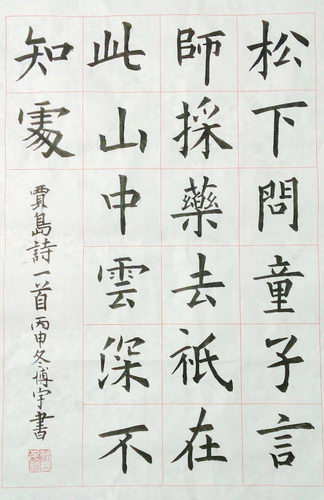 松下問童子言
師採藥去祇在
此山中雲深不
知處
賈島詩一首丙申冬博宇書